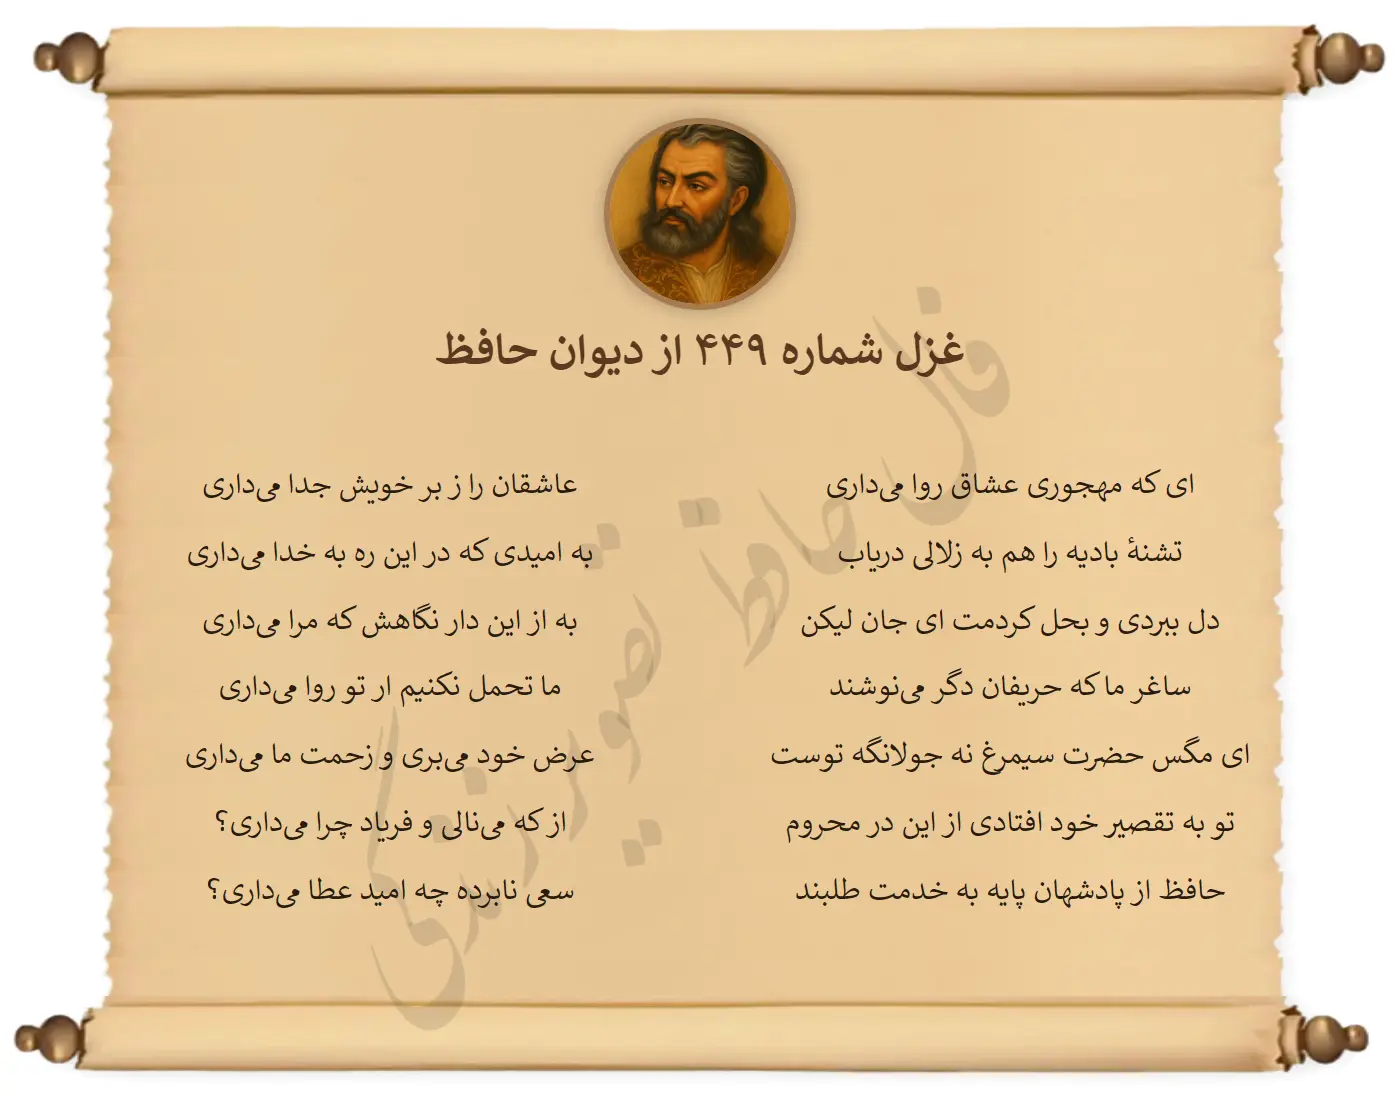 غزل شماره ۴۴۹ از دیوان حافظ
ای که مهجوری عشاق روا می‌داری
عاشقان را ز بر خویش جدا می‌داری
تشنهٔ بادیه را هم به زلالی دریاب
به امیدی که در این ره به خدا می‌داری
دل ببردی و بحل کردمت ای جان لیکن
به از این دار نگاهش که مرا می‌داری
ساغر ما که حریفان دگر می‌نوشند
ما تحمل نکنیم ار تو روا می‌داری
ای مگس حضرت سیمرغ نه جولانگه توست
عرض خود می‌بری و زحمت ما می‌داری
تو به تقصیر خود افتادی از این در محروم
از که می‌نالی و فریاد چرا می‌داری؟
حافظ از پادشهان پایه به خدمت طلبند
سعی نابرده چه امید عطا می‌داری؟
فال حافظ تصویر زندگی